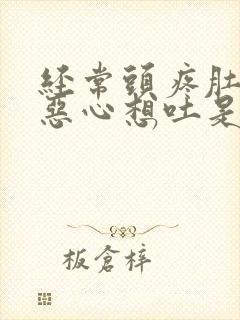 經常頭疼肚
惡心想吐是
板倉梓